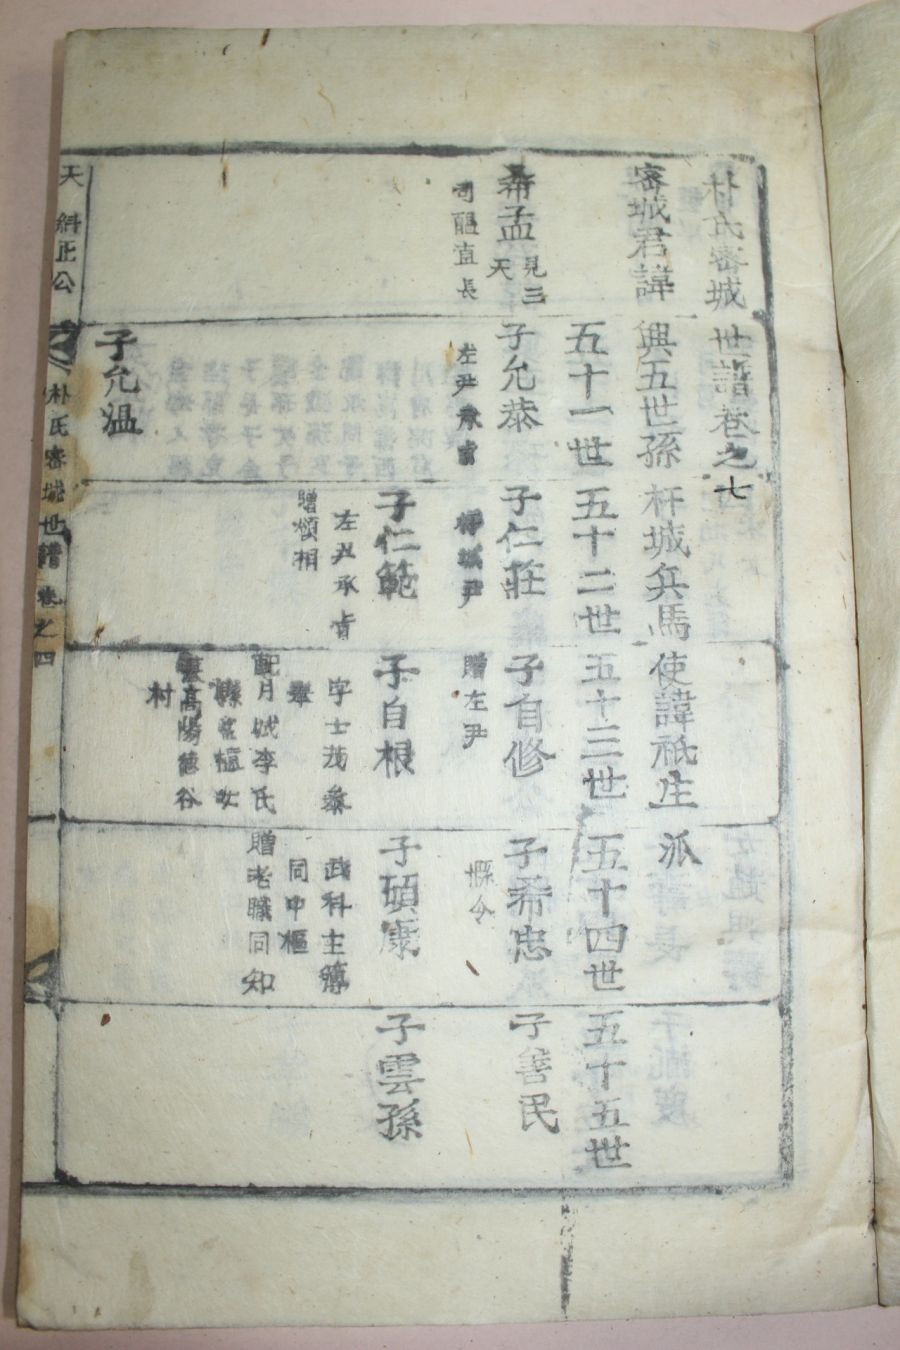 朴氏密城世譜卷之七
密城君諱興五世孫杆城兵馬使諱祗生派
五十一世
五十二世
五十三世
五十四世
五十五世
希孟
見三
天
司醞直長
子允恭
左尹
子仁莊
城尹
子自修
贈左尹
子希忠
縣令
子善民
子仁範
左尹承旨
贈領相
子自根
字士茂
配月城李氏
墓高陽德谷
村
子碩康
武科主簿
同中樞
贈老職同知
子雲孫
子允溫
天
糾正公
朴氏密城世譜
卷之四